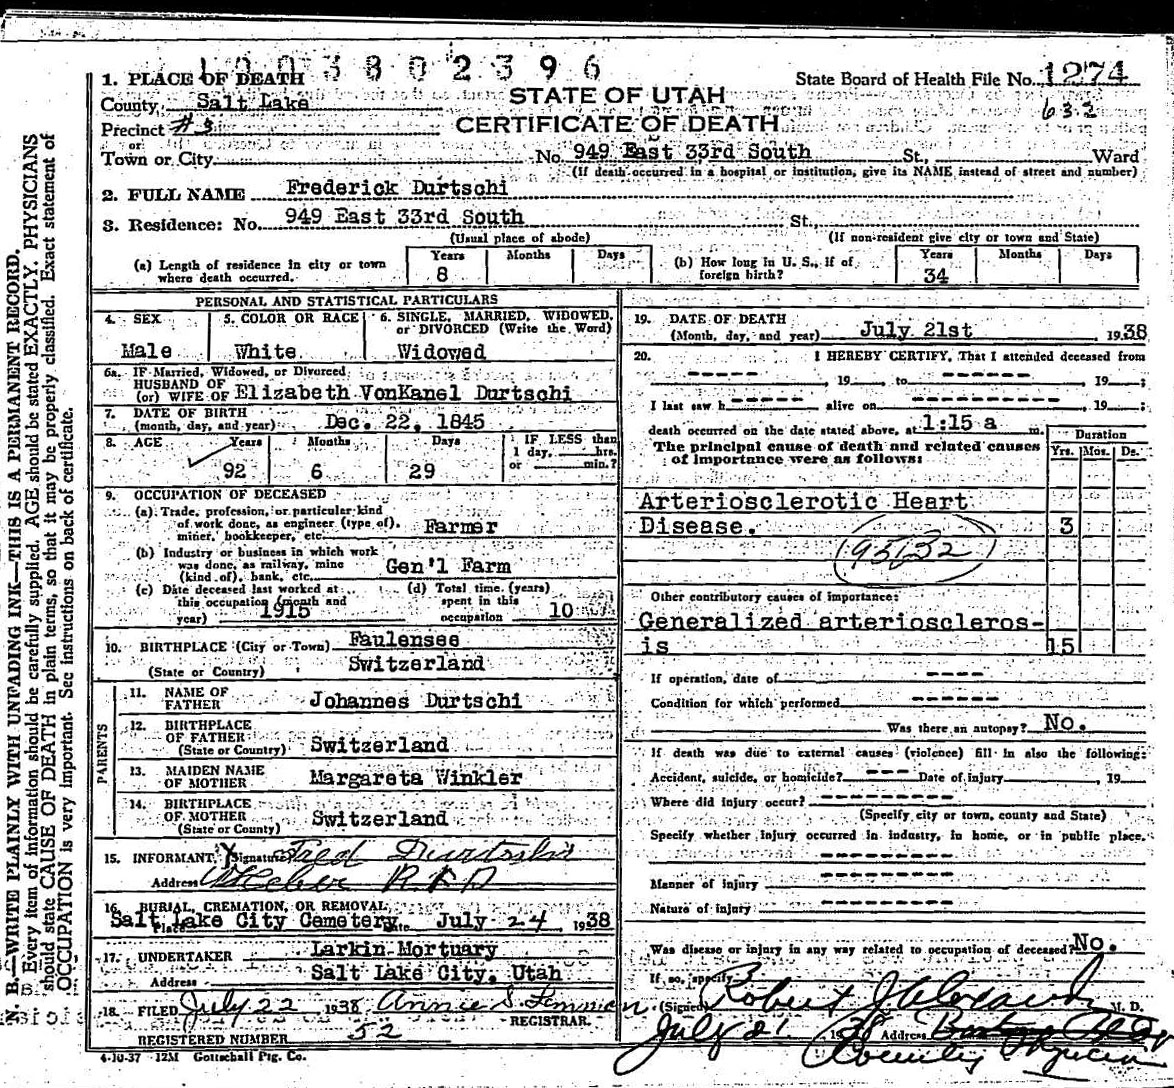 1 0 0 3 8 0 2 3 9 6
1. PLACE OF DEATH
State Board of Health File No. 1274
County Salt Lake
STATE OF UTAH
632
Precinct #3
CERTIFICATE OF DEATH
or
Town or City No. 949 East 33rd South St., Ward
(If death occurred in a hospital or institution, give its NAME instead of street and number)
2. FULL NAME Frederick Durtschi
3. Residence: No. 949 East 33rd South St.,
(Usual place of abode) (If non-resident give city or town and State)
(a) Length of residence in city or town where death occurred. Years 8 Months Days
(b) How long in U. S., if of foreign birth? Years 34 Months Days
N. B.—WRITE PLAINLY WITH UNFADING INK—THIS IS A PERMANENT RECORD.
Every item of information should be carefully supplied. AGE should be stated EXACTLY. PHYSICIANS
should state CAUSE OF DEATH in plain terms, so that it may be properly classified. Exact statement of
OCCUPATION is very important. See instructions on back of certificate.
PERSONAL AND STATISTICAL PARTICULARS
4. SEX
Male
5. COLOR OR RACE
White
6. SINGLE, MARRIED, WIDOWED,
or DIVORCED (Write the Word)
Widowed
6a. IF Married, Widowed, or Divorced
HUSBAND OF
(or) WIFE OF Elizabeth VonKanel Durtschi
7. DATE OF BIRTH
(month, day, and year) Dec. 22, 1845
8. AGE Years Months Days
92 6 29
IF LESS than
1 day, hrs.
or min.?
9. OCCUPATION OF DECEASED
(a) Trade, profession, or particular kind
of work done, as engineer (type of), Farmer
miner, bookkeeper, etc.
(b) Industry or business in which work
was done, as railway, mine Gen'l Farm
(kind of), bank, etc.
(c) Date deceased last worked at
this occupation (month and
year) 1915
(d) Total time (years)
spent in this
occupation 10
10. BIRTHPLACE (City or Town) Faulensee
(State or Country) Switzerland
PARENTS
11. NAME OF
FATHER Johannes Durtschi
12. BIRTHPLACE
OF FATHER
(State or Country) Switzerland
13. MAIDEN NAME
OF MOTHER Margareta Winkler
14. BIRTHPLACE
OF MOTHER Switzerland
(State or Country)
15. INFORMANT, X (Signature) Fred Durtschi
Address R.F.D
16. BURIAL, CREMATION, OR REMOVAL,
Place Salt Lake City Cemetery Date July 24 1938
17. UNDERTAKER Larkin Mortuary
Address Salt Lake City, Utah
18. FILED July 22 1938 Annie S.
REGISTRAR.
REGISTERED NUMBER 52
19. DATE OF DEATH
(Month, day, and year) July 21st 1938
20. I HEREBY CERTIFY, That I attended deceased from
----- , 19 , to ------ , 19 ;
I last saw h----- alive on ------ , 19 ;
death occurred on the date stated above, at 1:15 a m.
The principal cause of death and related causes
of importance were as follows:
Duration
Yrs. Mos. Ds.
Arteriosclerotic Heart
Disease. 3
95132
Other contributory causes of importance:
Generalized arterioscleros-
is 15
If operation, date of ----
Condition for which performed ----
Was there an autopsy? No.
If death was due to external causes (violence) fill in also the following:
Accident, suicide, or homicide? --- Date of injury , 19
Where did injury occur? ----------
(Specify city or town, county and State)
Specify whether injury occurred in industry, in home, or in public place.
----------
Manner of injury ----------
Nature of injury ----------
Was disease or injury in any way related to occupation of deceased? No.
If so, specify
(Signed) Robert J Alexander M. D.
July 21 1938 Address
County Physician
4-10-37 12M Gottschall Ptg. Co.